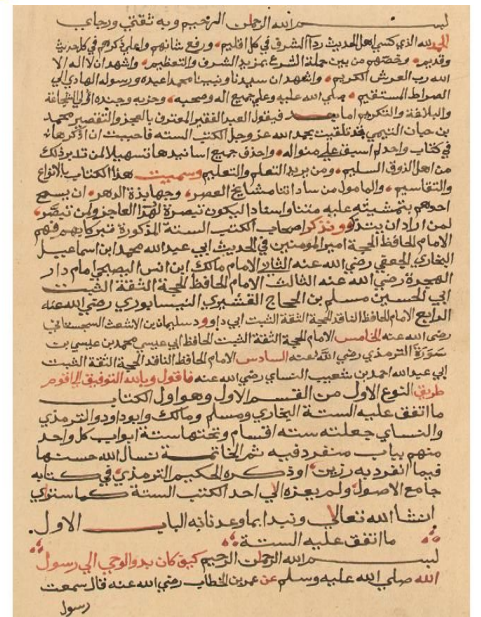 بسم الله الرحمان الرحيم وبه ثقتي ورجاءي
الحمد لله الذي كسى اهل الحديث رداء الشرف في كل اقليم ورفع شانهم واعلى ذكرهم في كل حديث
وقديم وخصهم من بين حملة الشرع بمزيد الشرف والتعظيم واشهد ان لا اله الا
الله رب العرش الكريم واشهد ان سيدنا ونبينا محمدا عبده ورسوله الهادي الى
الصراط المستقيم صلى الله عليه وعلى جميع اله وصحبه وحزبه وجنده اولى الشجاعة
والبلاغة والتكريم اما بعد فيقول العبد الفقير المعترف بالعجز والتقصير محمد
بن حيان التتيمي قد تلقيت بحمد الله عز وجل الكتب الستة فاحببت ان اذكرها
في كتاب واحد لم اسبق على منواله واحذف جميع اسانيدها تسهيلا لمن تدبر ذلك
من اهل الذوق السليم ومن يريد التعلم والتعليم وسميت هذا الكتاب بالانواع
والتقاسيم والمامول من ساداتنا مشايخ العصر وجهابذة الدهر ان يسمح
احدهم بتمشيته عليه متنا واسنادا ليكون تبصرة لهذا العاجز ولمن تبصر
لمن اراد ان يتذكر ونذكر اصحاب الكتب الستة المذكورة تبركا بهم فهم
الامام الحافظ الحجة امير المومنين في الحديث ابي عبد الله محمد بن اسماعيل
البخاري الجعفي رضي الله عنه الثاني الامام مالك بن انس اليصبحي امام دار
الهجرة رضي الله عنه الثالث الامام الحافظ الحجة الثقة الثبت
ابي الحسين مسلم بن الحجاج القشيري النيسابوري رضي الله عنه
الرابع الامام الحافظ الناقد الحجة الثقة الثبت ابي داوود سليمان بن الاشعث السجستاني
رضي الله عنه الخامس الامام الحجة الثقة الثبت الحافظ ابي عيسى محمد بن عيسى بن
سورة الترمذي رضي الله عنه السادس الامام الحافظ الناقد الحجة الثقة الثبت
ابي عبد الله احمد بن شعيب النساي رضي الله عنه فاقول وبالله التوفيق الى اقوم
طريق النوع الاول من القسم الاول وهو اول الكتاب
ما اتفق عليه الستة البخاري ومسلم ومالك وابو داود والترمذي
والنساي جعلته سته اقسام وتحتها ستة ابواب كل واحد
منهم بباب منفرد فيه ثم الخاتمة نسال الله حسنها
فيما انفرد به رزين اوذكره الحكيم الترمذي في كتابه
جامع الاصول ولم يعزه الى احد الكتب الستة كما ستراه
انشا الله تعالى ونبدا بما وعدنا به الباب الاول
ما اتفق عليه الستة
بسم الله الرحمان الرحيم كيف كان بدو الوحي الى رسول
الله صلى الله عليه وسلم عن عمر بن الخطاب رضي الله عنه قال سمعت
رسول